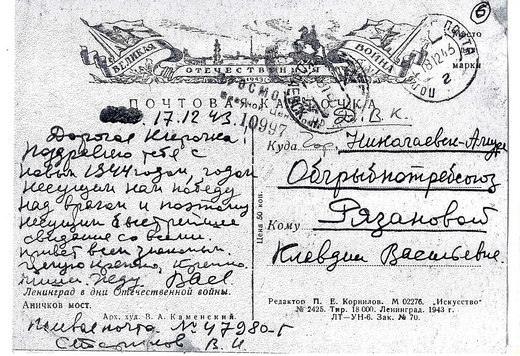 6
ВЕЛИКАЯ ОТЕЧЕСТВЕННАЯ ВОЙНА
ПОЧТОВАЯ КАРТОЧКА
место для марки
18 12 43
10997
17.12.43.
Дорогая Клерочка
Поздравляю тебя с
новым 1944 годом, годом
несущим нам победу
над врагом и поэтому
несущим быстрейшее
свидание со всеми
привет всем знакомым
целую крепко, крепко.
пиши. Жду. Вас
Ленинград в дни Отечественной войны.
Аничков мост.
Арх. худ. В. А. Каменский.
почта № 47980-Г
В. И
Цена 50 коп.
Д.В.К.
Куда гор. Николаевск-Амуре
Облрыбпотребсоюз
Кому Рязановой
Клавдии Васильевне
Редактор П. Е. Корнилов. М 02276. „Искусство"
№ 2425. Тир. 18 000. Ленинград. 1943 г.
ЛТ—УН-6. Зак. № 70.